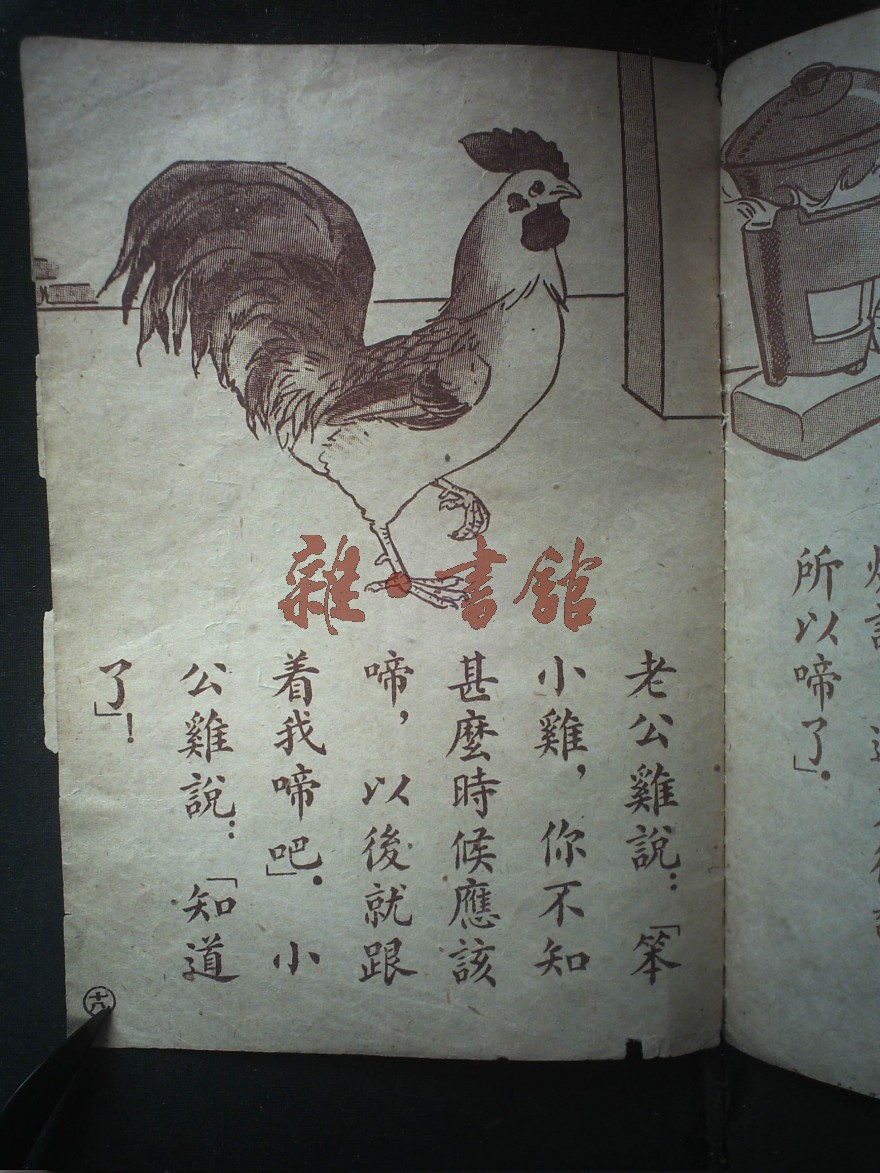 所以啼了」.
老公雞說:「笨
小雞,你不知
甚麼時候應該
啼,以後就跟
着我啼吧」.小
公雞說:「知道
了」!
十八
雜·書館